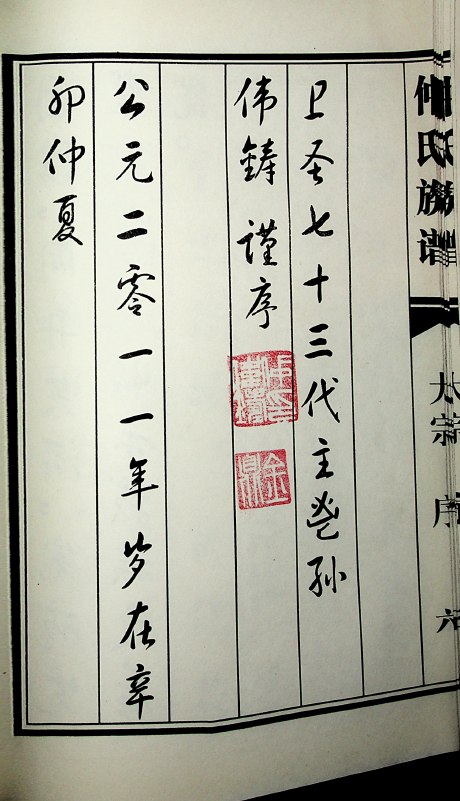 仲氏族谱
大宗序 六
亚圣七十三代主鬯孙
伟铸 谨序
公元二零一一年岁在辛
卯仲夏